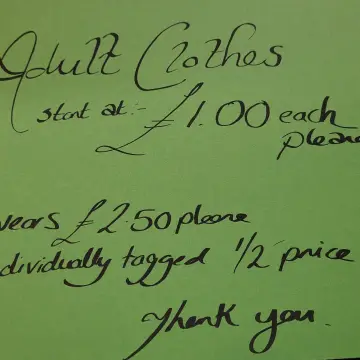 Adult Clothes
start at:- £1.00 each
please
wears £2.50 please
dividually tagged 1/2 price
Thank you.